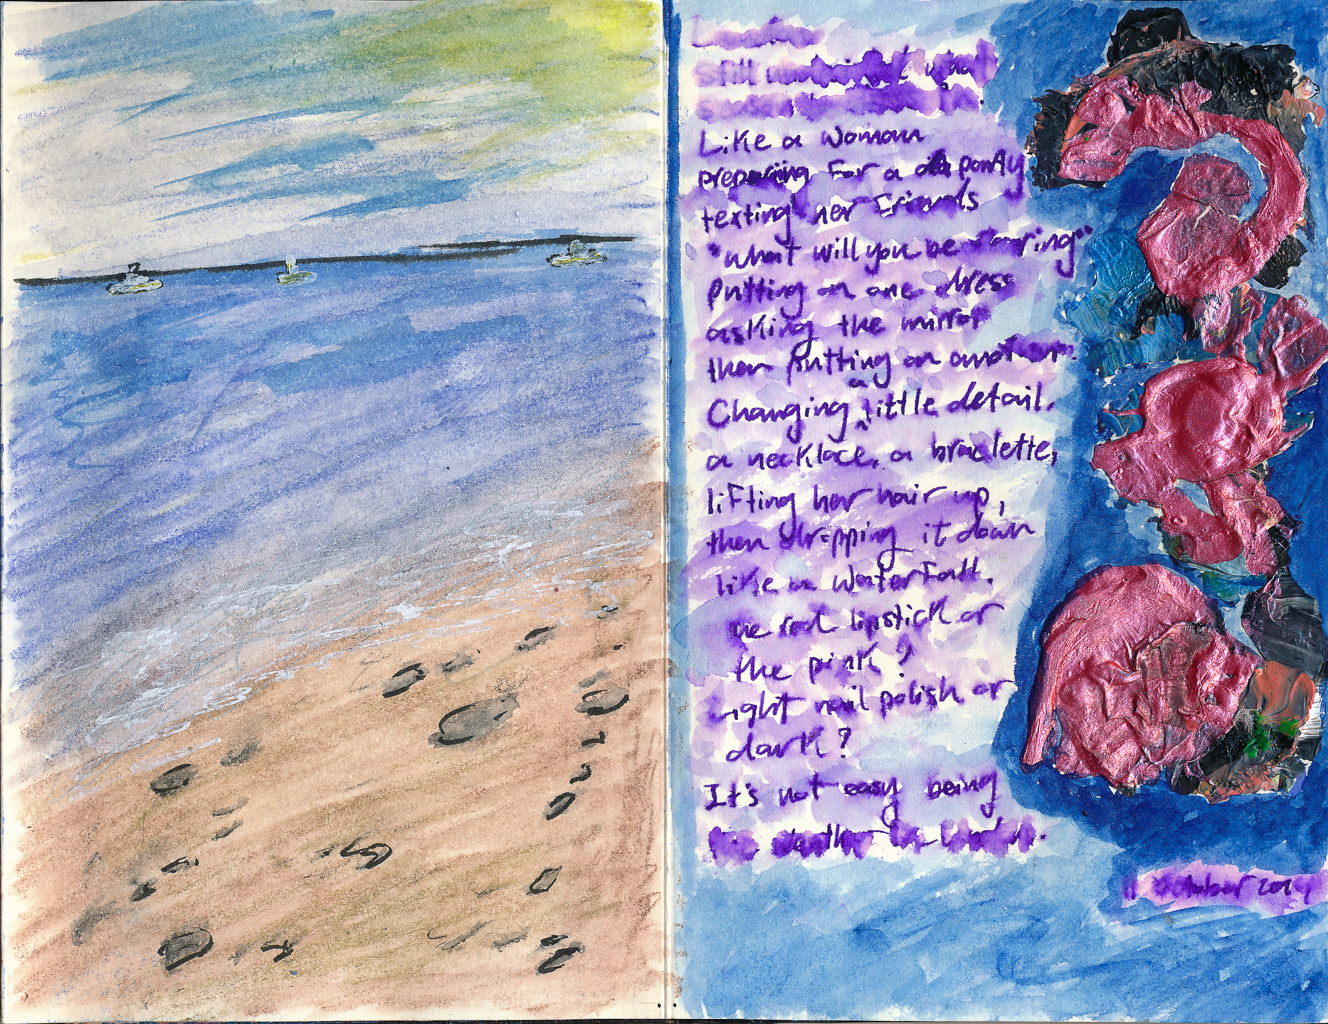 still what
in
Like a woman
preparing for a party
texting her friends
"what will you be wearing"
putting on one dress
asking the mirror
then putting on another.
Changing a little detail.
a necklace, a braclette,
lifting her hair up,
then dropping it down
like a waterfall.
the red lipstick or
the pink?
Light nail polish or
dark?
It's not easy being
the weather in London.
11 October